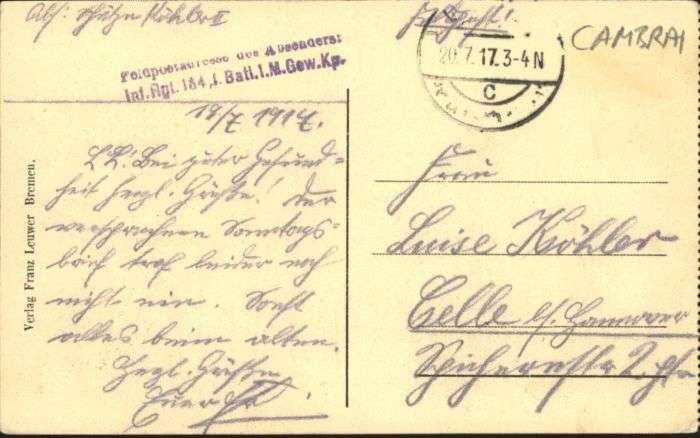 Abs: Schütze Köhler II
Feldpost!
Feldpostadresse des Absenders:
Inf.Rgt. 184, I. Batl. 1. M. Gew. Kp.
20.7.17. 3-4N
c
CAMBRAI
18/7 1917.
L.L.! Bei guter Gesund=
heit herzl. Grüße! Der
versprochene Sonntags=
brief traf leider noch
nicht ein. Sonst
alles beim alten.
Herzl. Grüße
Euer
Frau
Luise Köhler
Celle b/ Hannover
Spichernstr. 2
Verlag Franz Leuwer Bremen.